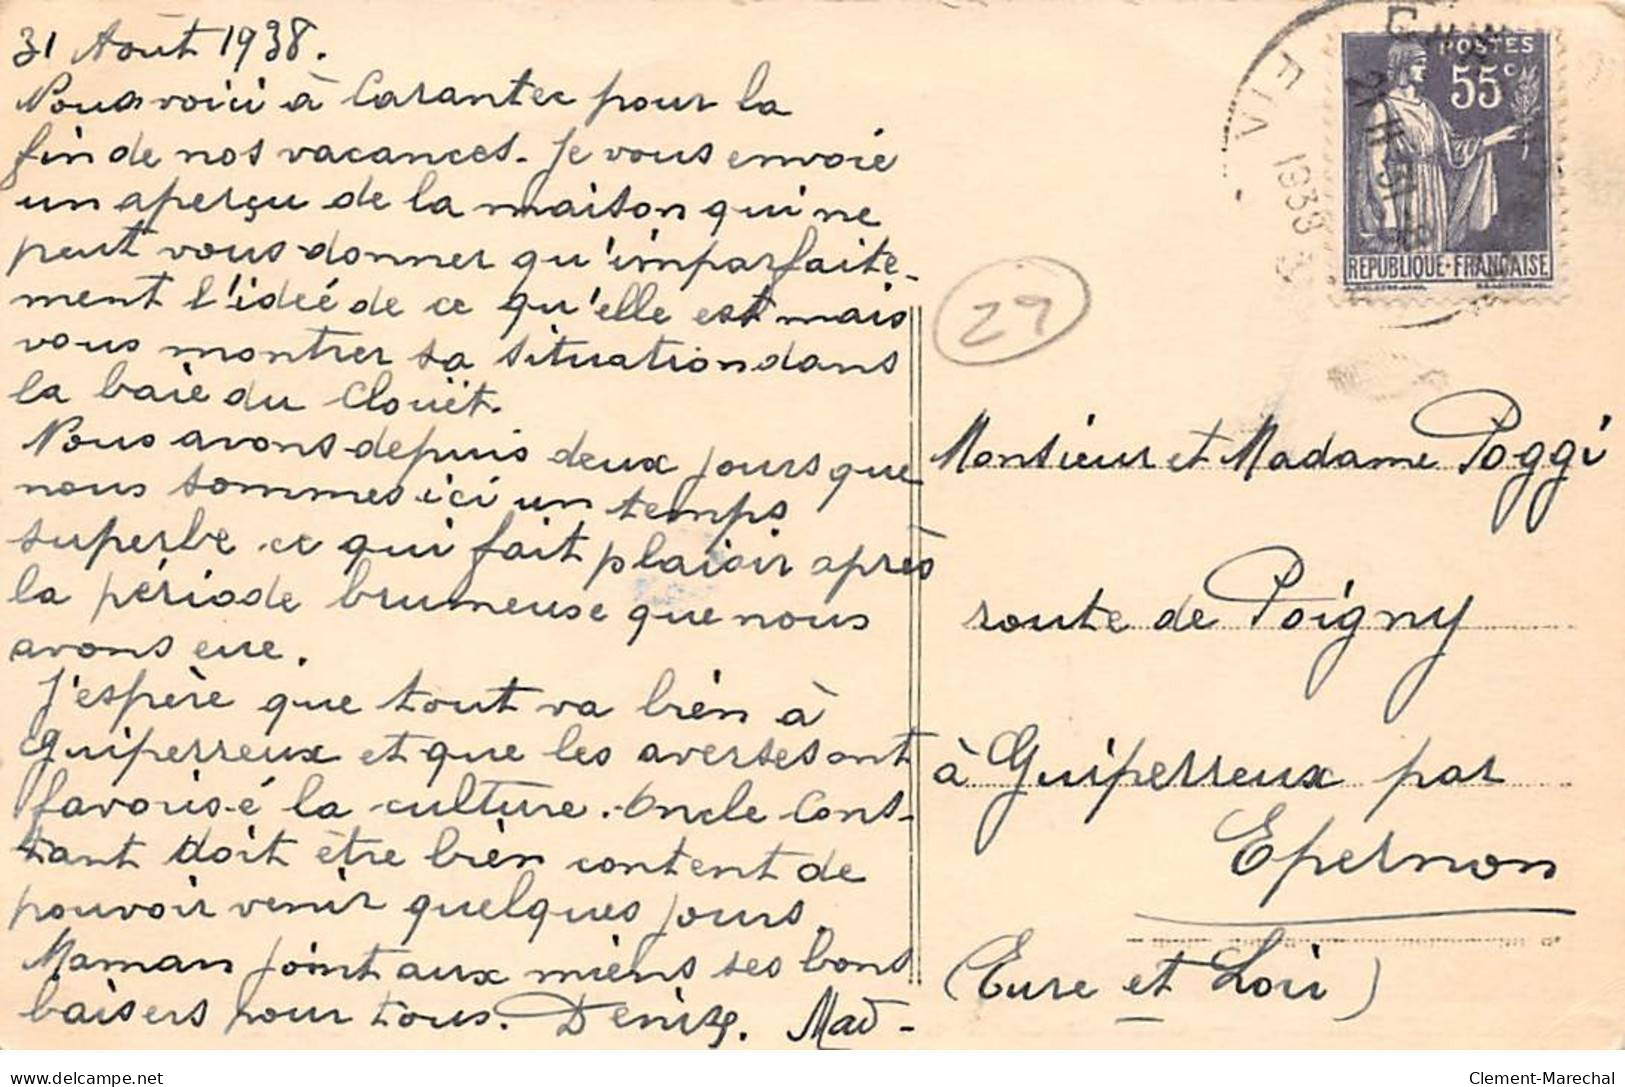 31 Août 1938.
Nous voici à Carantec pour la
fin de nos vacances. Je vous envoie
un aperçu de la maison qui ne
peut vous donner qu'imparfaite-
ment l'idée de ce qu'elle est mais
vous montrer sa situation dans
la baie du Clouët.
Nous avons depuis deux jours que
nous sommes ici un temps
superbe ce qui fait plaisir après
la période brumeuse que nous
avons eue.
J'espère que tout va bien à
Guiperreux et que les averses ont
favorisé la culture. Oncle Cons-
tant doit être bien content de
pouvoir venir quelques jours.
Maman joint aux miens ses bons
baisers pour tous. Denise. Mad-
POSTES
55c
REPUBLIQUE-FRANÇAISE
1938
29
Monsieur et Madame Poggi
route de Poigny
à Guiperreux par
Epernon
(Eure et Loir)
delcampe.net
Clement-Marechal